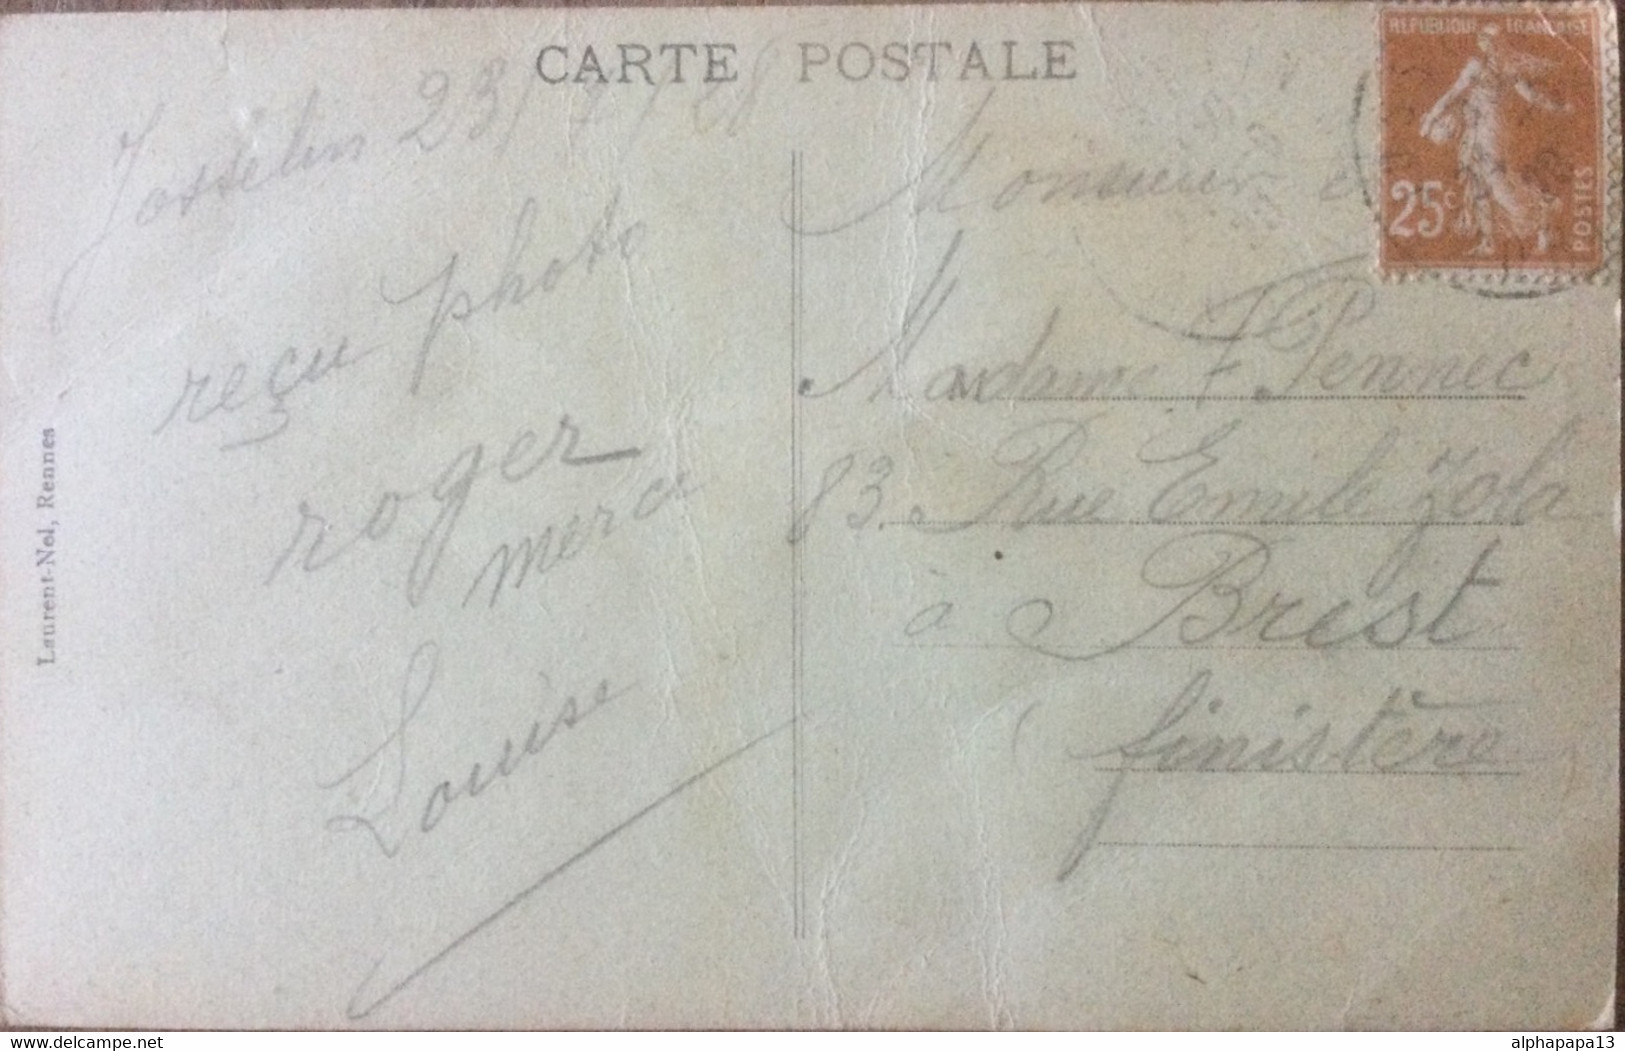 CARTE POSTALE
Josselin 23/7/28
reçu photo
roger
merci
Louise
Laurent-Nel, Rennes
REPUBLIQUE FRANÇAISE
25c
POSTES
Monsieur e
Madame F. Pennec
83. Rue Emile Zola
à Brest
(finistère
delcampe.net
alphapapa13